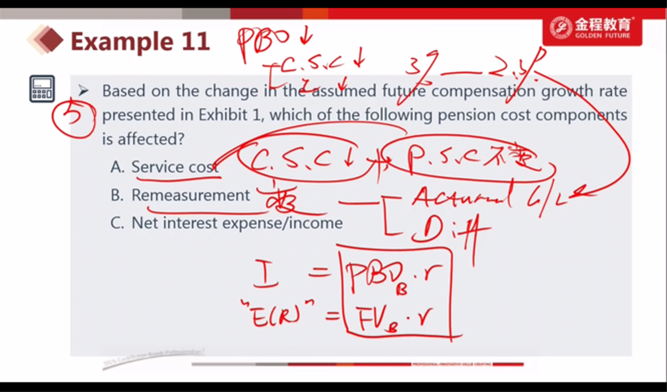 Example 11
金程教育
GOLDEN FUTURE
PBO ↓
C.S.C ↓
I ↓
3% — 2.5%
➢ Based on the change in the assumed future compensation growth rate
5
presented in Exhibit 1, which of the following pension cost components
is affected?
A. Service cost
C.S.C ↓ + P.S.C 不变
B. Remeasurement
变
Actuarial G/L
C. Net interest expense/income
Diff
I = PBO_B · r
"E(R)" = FV_B · r
PROFESSIONAL·INNOVATION·VALUE-CREATING